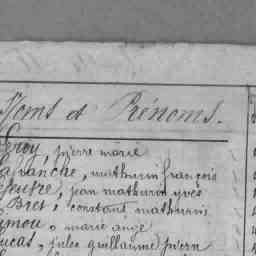 Noms et Prénoms.
Leroy, pierre marie
Lapanche, mathurin françois
Jean mathurin yves
Bret, constant mathurin
marie ange
Lucas, jules guillaume pierre